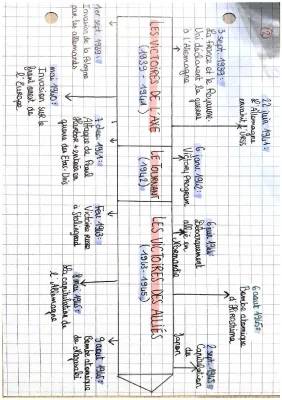 3 sept. 1939 :
La France et le Royaume-
Uni déclarent la guerre
à l'Allemagne
22 juin 1941 :
l'Allemagne
envahit l'URSS
6 janv. 1942 :
Victory Program
6 juin 1944 :
Débarquement
allié en
Normandie
6 août 1945 :
Bombe atomique
d'Hiroshima
2 sept. 1945 :
Capitulation
du
Japon
LES VICTOIRES DE L'AXE
(1939 - 1941)
LE TOURNANT
(1942)
LES VICTOIRES DES ALLIÉS
(1943-1945)
1er sept. 1939 :
Invasion de la Pologne
par les allemands
mai 1940 :
Invasion sur le
front ouest de
l'Europe
7 déc. 1941 :
Attaque de Pearl
Harbor + entrée en
guerre des Etats-Unis
Fev. 1943 :
Victoire russe
à Stalingrad
8 mai 1945 :
La capitulation de
l'Allemagne
9 août 1945 :
Bombe atomique
de Nagasaki